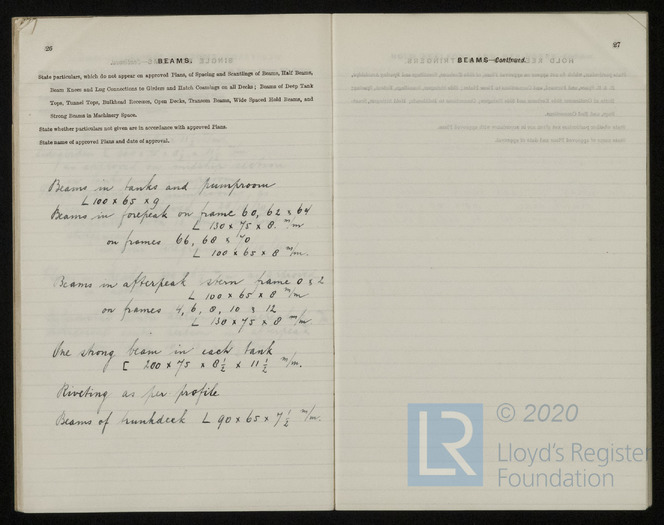 26
BEAMS.
State particulars, which do not appear on approved Plans, of Spacing and Scantlings of Beams, Half Beams,
Beam Knees and Lug Connections to Girders and Hatch Coamings on all Decks; Beams of Deep Tank
Tops, Tunnel Tops, Bulkhead Recesses, Open Decks, Transom Beams, Wide Spaced Hold Beams, and
Strong Beams in Machinery Space.
State whether particulars not given are in accordance with approved Plans.
State name of approved Plans and date of approval.
Beams in tanks and pumproom
L 100 x 65 x 9
Beams in forepeak on frame 60, 62 & 64
L 130 x 75 x 8 m/m
on frames 66, 68 & 70
L 100 x 65 x 8 m/m.
Beams in afterpeak stern frame 0 & 2
L 100 x 65 x 8 m/m
on frames 4, 6, 8, 10 & 12
L 130 x 75 x 8 m/m
One strong beam in each tank
[ 200 x 75 x 8½ x 11½ m/m.
Riveting as per profile
Beams of trunkdeck L 90 x 65 x 7½ m/m.
27
BEAMS—Continued.
LR
© 2020
Lloyd's Register
Foundation